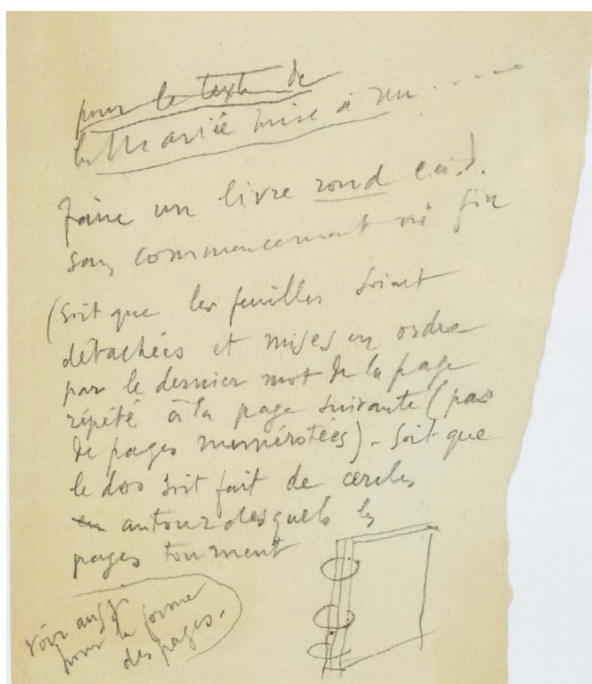 pour le texte de
la Mariée mise à nu . . . . .
Faire un livre rond c.à.d.
sans commencement ni fin
(soit que les feuilles soient
détachées et mises en ordre
par le dernier mot de la page
répété à la page suivante (pas
de pages numérotées) - soit que
le dos soit fait de cercles
autour desquels les
pages tournent
voir aussi
pour la forme
des pages.